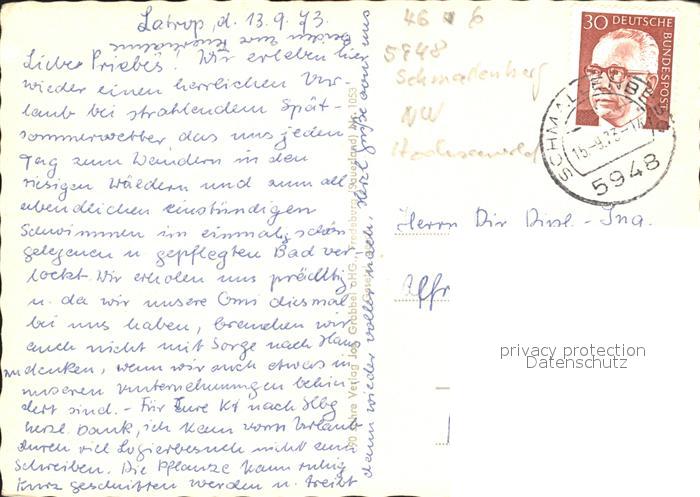 Latrop, d. 13.9.73.
Liebe Priebes! Wir erleben hier
wieder einen herrlichen Ur-
laub bei strahlendem Spät-
sommerwetter das uns jeden
Tag zum Wandern in den
riesigen Wäldern und zum all-
abendlichen einstündigen
Schwimmen im einmalig schön
gelegenen u. gepflegten Bad ver-
lockt. Wir erholen uns prächtig
u. da wir unsere Omi diesmal
bei uns haben, brauchen wir
auch nicht mit Sorge nach Haus
zu denken, wenn wir auch etwas in
unseren Unternehmungen behin-
dert sind. - Für Eure Kt nach Hbg
herzl. Dank, ich kam vorm Urlaub
durch viel Logierbesuch nicht zum
Schreiben. Die Pflanze kann ruhig
kurz geschnitten werden u. treibt
dann wieder voller nach. Herzl. Grüße
90 Jahre Verlag Jos. Grobbel oHG., Fredeburg (Sauerland)
46 6
5948
Schmallenberg
NW
Hochsauerland
30 DEUTSCHE
BUNDESPOST
SCHMALLENBERG
-9.73-
5948
Herrn Dir Dipl.-Ing.
Alfr
privacy protection
Datenschutz